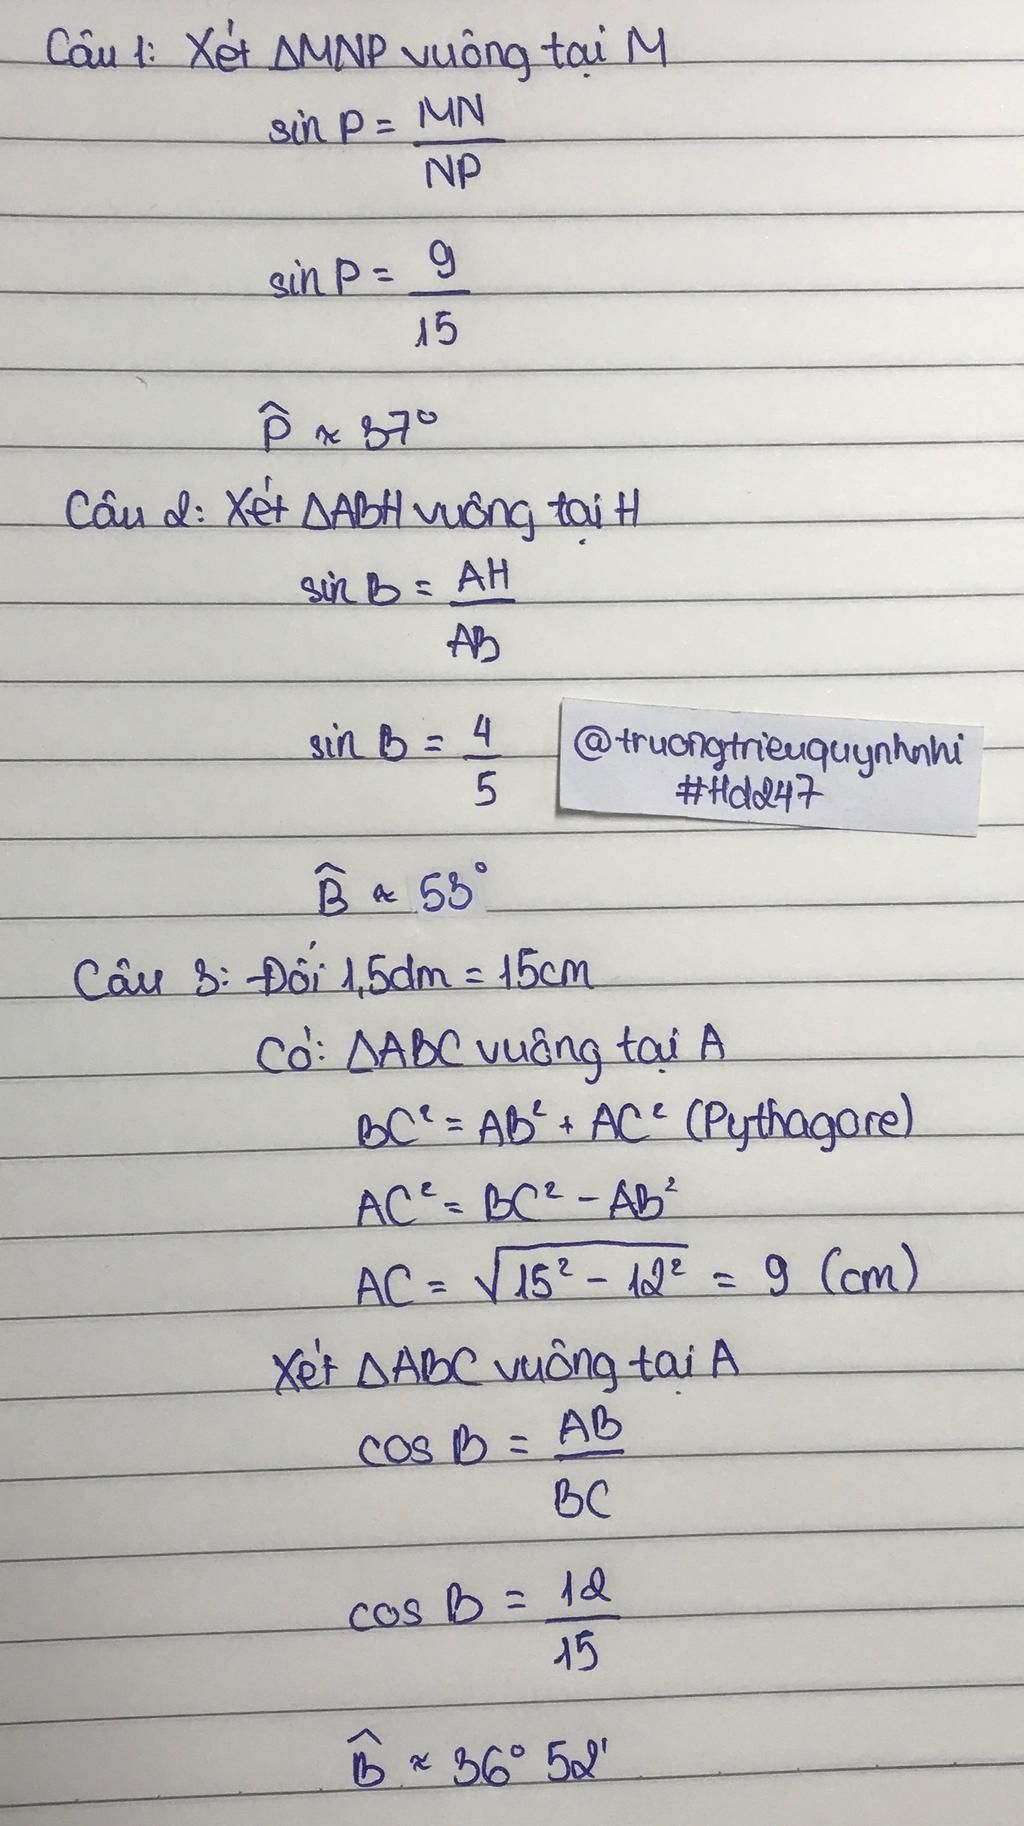 Câu 1: Xét ΔMNP vuông tại M
sin P = MN/NP
sin P = 9/15
P̂ ≈ 37°
Câu 2: Xét ΔABH vuông tại H
sin B = AH/AB
sin B = 4/5
@truongtrieuquynhnhi
#Hd247
B̂ ≈ 53°
Câu 3: Đổi 1,5dm = 15cm
Có: ΔABC vuông tại A
BC² = AB² + AC² (Pythagore)
AC² = BC² - AB²
AC = √(15² - 12²) = 9 (cm)
Xét ΔABC vuông tại A
cos B = AB/BC
cos B = 12/15
B̂ ≈ 36° 52'